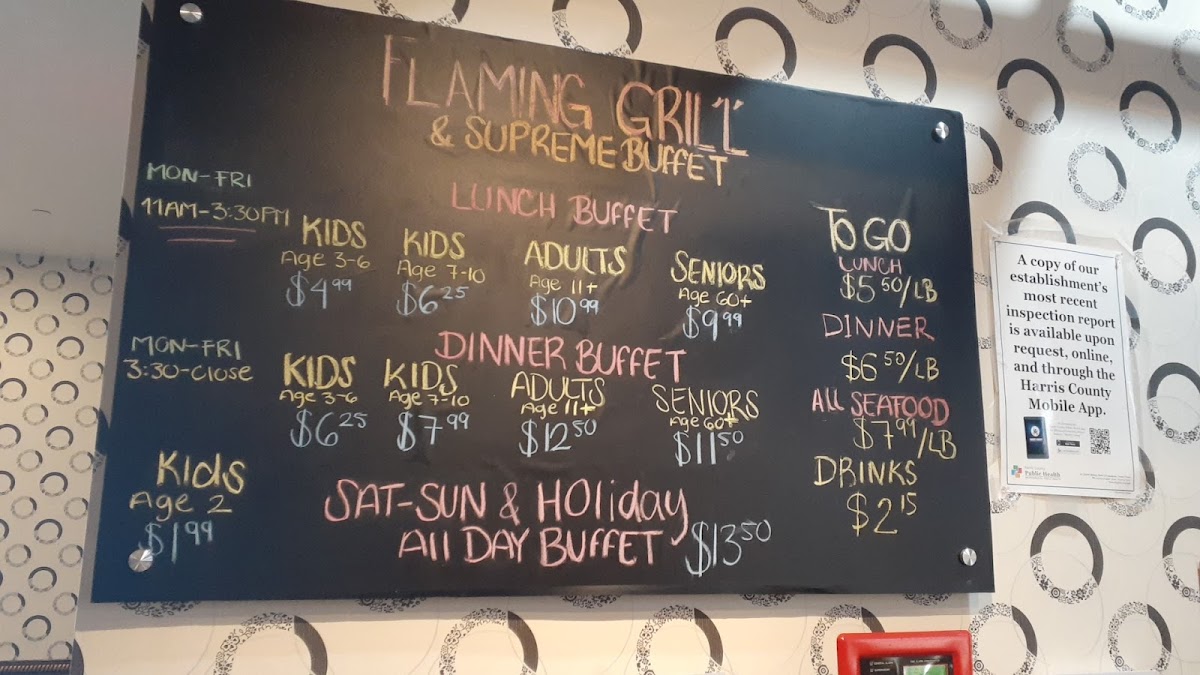 FLAMING GRILL
& SUPREME BUFFET
MON-FRI
11AM-3:30PM
LUNCH BUFFET
KIDS
Age 3-6
$4.99
KIDS
Age 7-10
$6.25
ADULTS
Age 11+
$10.99
SENIORS
Age 60+
$9.99
MON-FRI
3:30-Close
DINNER BUFFET
KIDS
Age 3-6
$6.25
KIDS
Age 7-10
$7.99
ADULTS
Age 11+
$12.50
SENIORS
Age 60+
$11.50
Kids
Age 2
$1.99
SAT-SUN & HOliday
All DAY BUFFET $13.50
TO GO
LUNCH
$5.50/LB
DINNER
$6.50/LB
All SEAFOOD
$7.99/LB
DRINKS
$2.15
A copy of our
establishment's
most recent
inspection report
is available upon
request, online,
and through the
Harris County
Mobile App.
Public Health